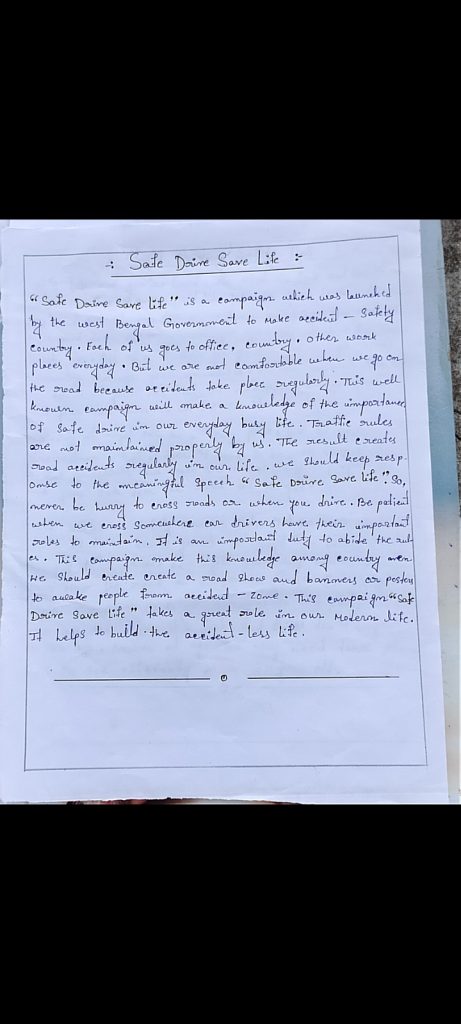 -: Safe Drive Save Life :-
"Safe Drive Save Life" is a campaign which was launched
by the west Bengal Government to make accident - Safety
country. Each of us goes to office, country, other work
places everyday. But we are not comfortable when we go on
the road because accidents take place regularly. This well
known campaign will make a knowledge of the importance
of safe drive in our everyday busy life. Traffic rules
are not maintained properly by us. The result creates
road accidents regularly in our life. we should keep resp-
onse to the meaningful speech "Safe Drive Save life". So,
never be hurry to cross roads or when you drive. Be patient
when we cross somewhere car drivers have their important
roles to maintain. It is an important duty to abide the rul-
es. This campaign make this knowledge among country men
We should create create a road show and banners or poster
to awake people from accident - zone. This campaign "Safe
Drive Save life" takes a great role in our modern life.
It helps to build the accident - less life.